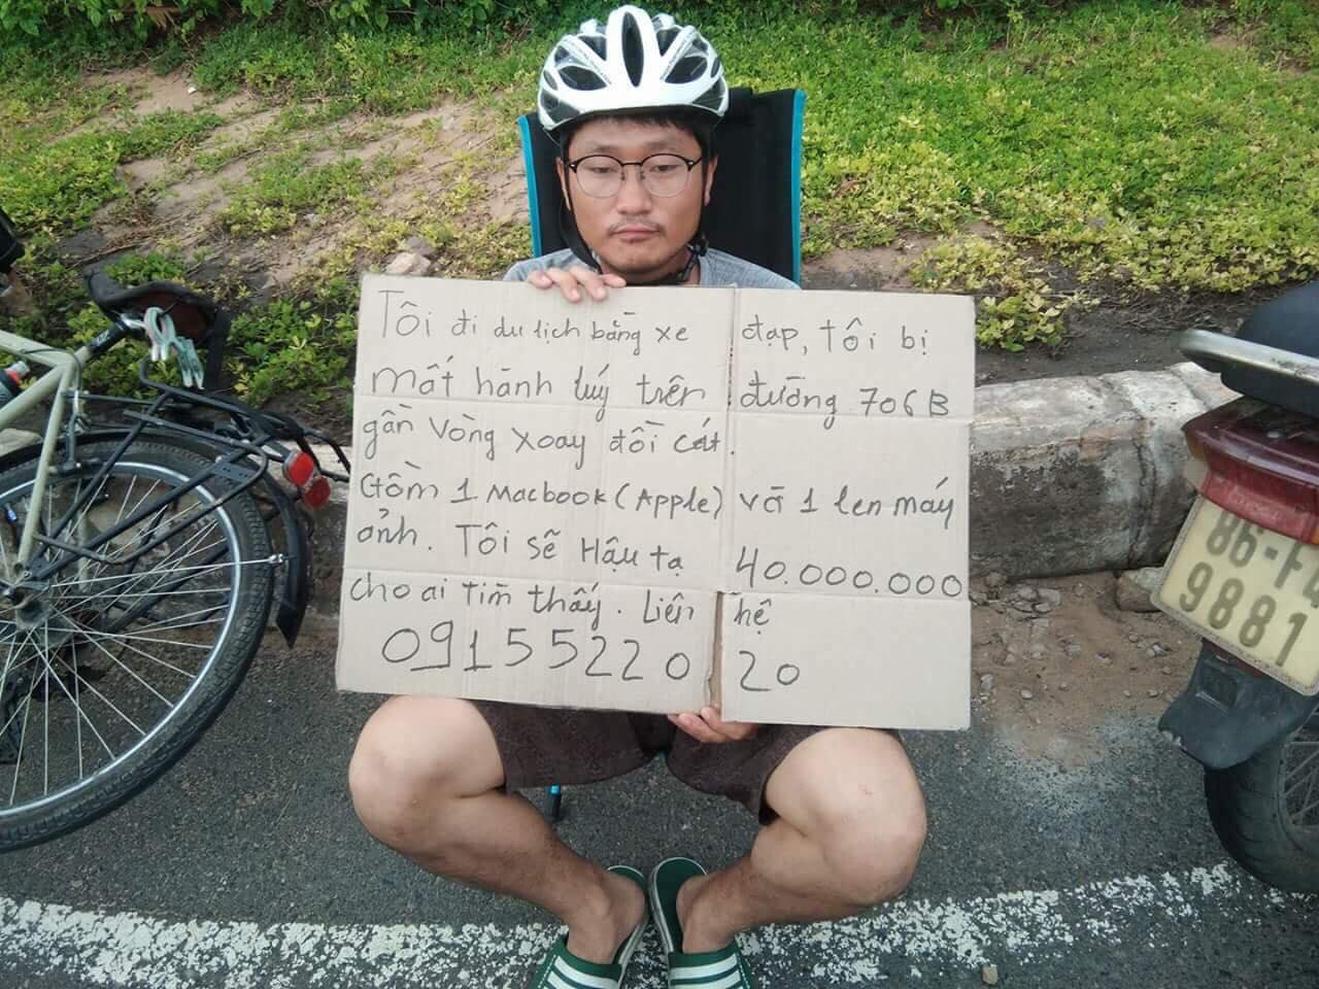 Tôi đi du lịch bằng xe đạp, tôi bị
mất hành luý trên đường 706B
gần vòng xoay đồi cát.
Gồm 1 Macbook (Apple) và 1 len máy
ảnh. Tôi sẽ Hậu tạ 40.000.000
cho ai tìm thấy. Liên hệ
09155220 20
86-F4
9881